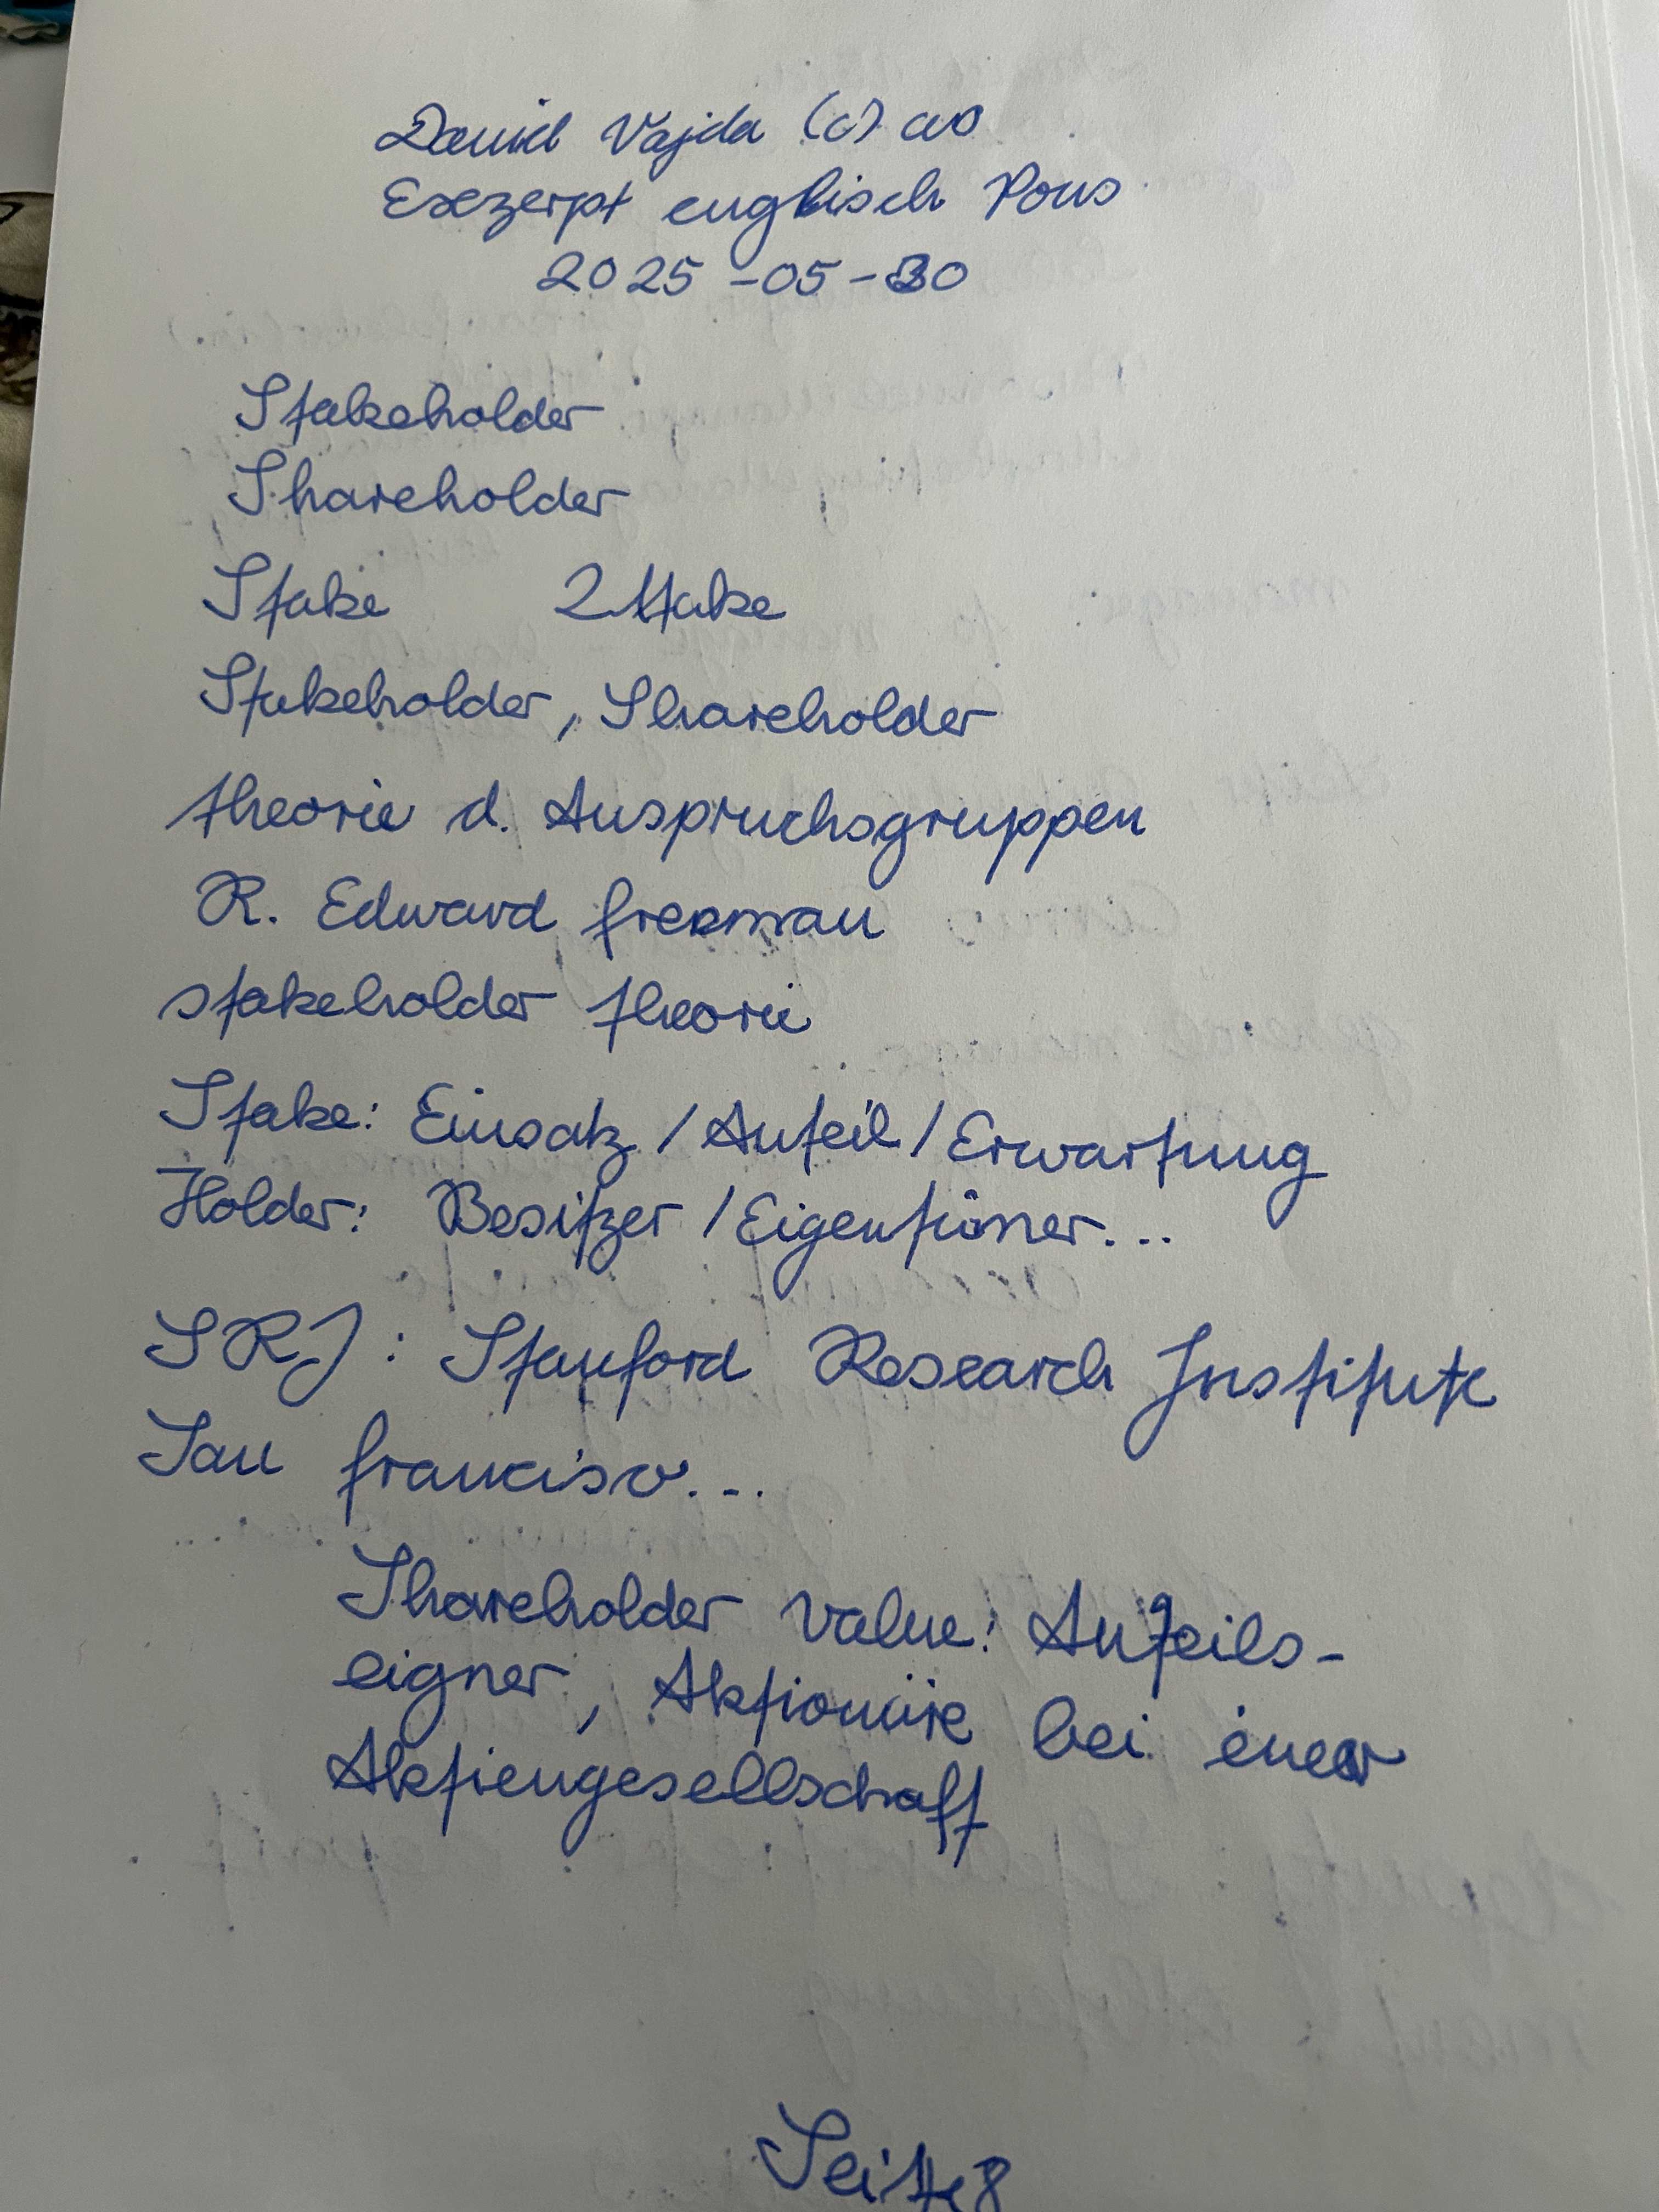 Daniel Vajda (c) ceo
Exezerpt englisch Pons
2025-05-30
Stakeholder
Shareholder
Stake
Stakeholder, Shareholder
theorie d. Anspruchsgruppen
R. Edward freeman
stakeholder theorie
Stake: Einsatz / Anteil / Erwartung
Holder: Besitzer / Eigentümer...
SRI: Stanford Research Institute
San francisco...
Shareholder Value: Anteils-
eigner, Aktionäre bei einer
Aktiengesellschaft
Seite 8